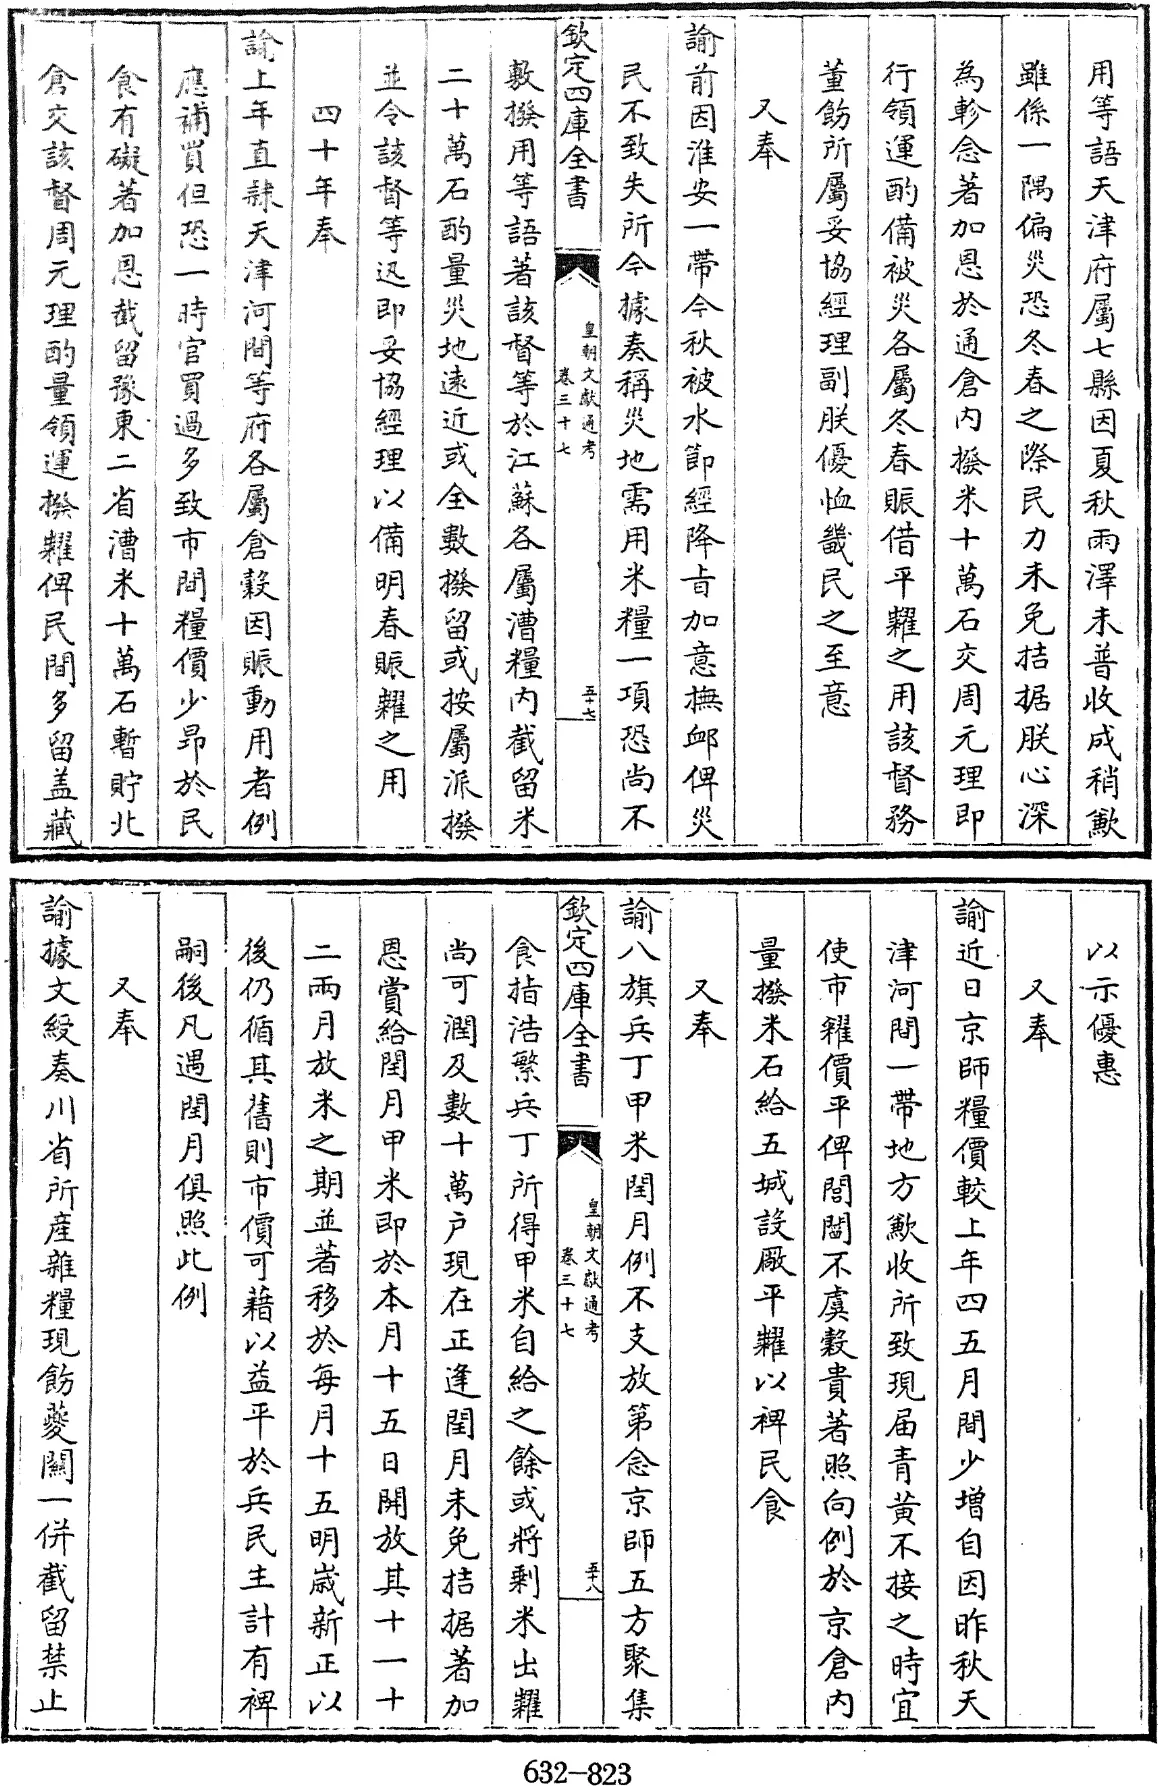 用等語天津府屬七縣因夏秋雨澤未普收成稍歉
雖係一隅偏災恐冬春之際民力未免拮据朕心深
為軫念著加恩於通倉內撥米十萬石交周元理即
行領運酌備被災各屬冬春賑借平糶之用該督務
董飭所屬妥協經理副朕優恤畿民之至意
又奉
諭前因淮安一帶今秋被水節經降旨加意撫䘏俾災
民不致失所今據奏稱災地需用米糧一項恐尚不
欽定四庫全書
皇朝文獻通考
卷三十七
五十七
敷撥用等語著該督等於江蘇各屬漕糧內截留米
二十萬石酌量災地遠近或全數撥留或按屬派撥
並令該督等迅即妥協經理以備明春賑糶之用
四十年奉
諭上年直隸天津河間等府各屬倉穀因賑動用者例
應補買但恐一時官買過多致市間糧價少昂於民
食有礙著加恩截留豫東二省漕米十萬石暫貯北
倉交該督周元理酌量領運撥糶俾民間多留盖藏
以示優惠
又奉
諭近日京師糧價較上年四五月間少增自因昨秋天
津河間一帶地方歉收所致現届青黃不接之時宜
使市糶價平俾閭閻不虞穀貴著照向例於京倉內
量撥米石給五城設廠平糶以裨民食
又奉
諭八旗兵丁甲米閏月例不支放第念京師五方聚集
欽定四庫全書
皇朝文獻通考
卷三十七
五十八
食指浩繁兵丁所得甲米自給之餘或將剩米出糶
尚可潤及數十萬户現在正逢閏月未免拮据著加
恩賞給閏月甲米即於本月十五日開放其十一十
二兩月放米之期並著移於每月十五明嵗新正以
後仍循其舊則市價可藉以益平於兵民生計有裨
嗣後凡遇閏月俱照此例
又奉
諭據文綬奏川省所産雜糧現飭夔關一併截留禁止
632-823